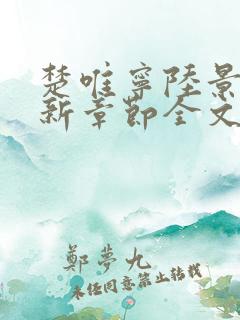 楚唯寧陸景
新章節全文
鄭夢九
未經同意禁止轉載